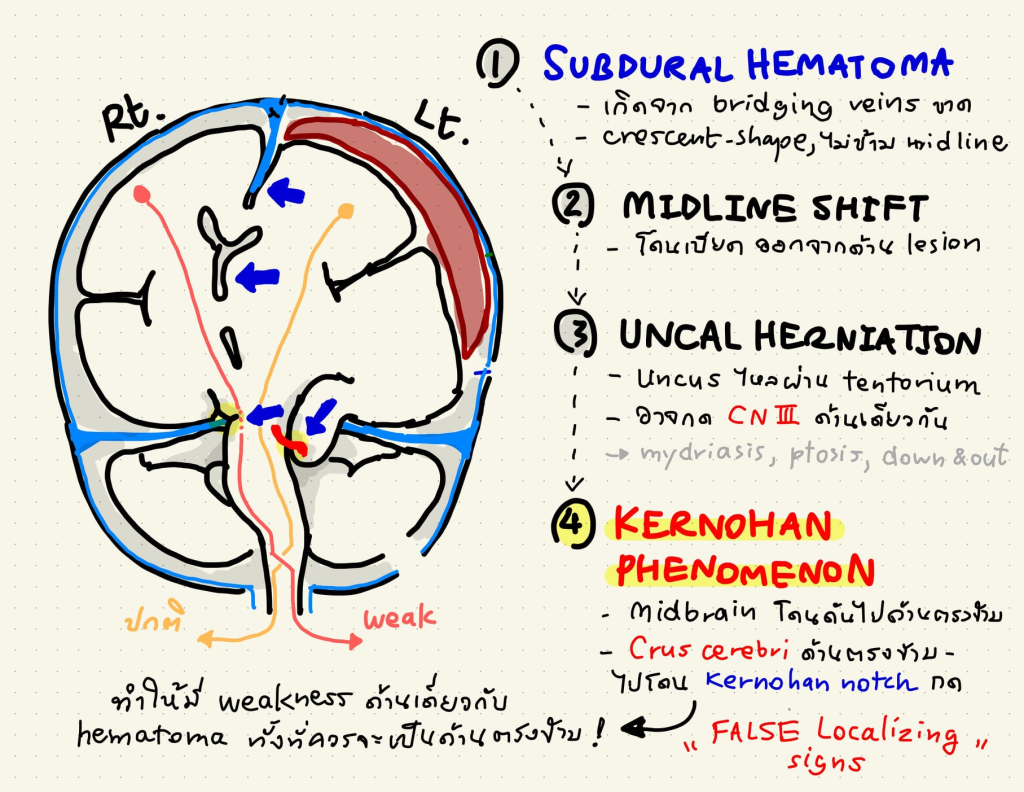 Rt.
Lt.
1 SUBDURAL HEMATOMA
- เกิดจาก bridging veins ขาด
- crescent-shape, ไม่ข้าม midline
2 MIDLINE SHIFT
- โดนเบียด ออกจากด้าน lesion
3 UNCAL HERNIATION
- Uncus ไหลผ่าน tentorium
- อาจกด CN III ด้านเดียวกัน
→ mydriasis, ptosis, down & out
4 KERNOHAN
PHENOMENON
- Midbrain โดนดันไปด้านตรงข้าม
- Crus cerebri ด้านตรงข้าม -
ไปโดน Kernohan notch กด
"FALSE Localizing"
signs
ปกติ
weak
ทำให้มี weakness ด้านเดียวกับ
hematoma ทั้งที่ควรจะเป็นด้านตรงข้าม!